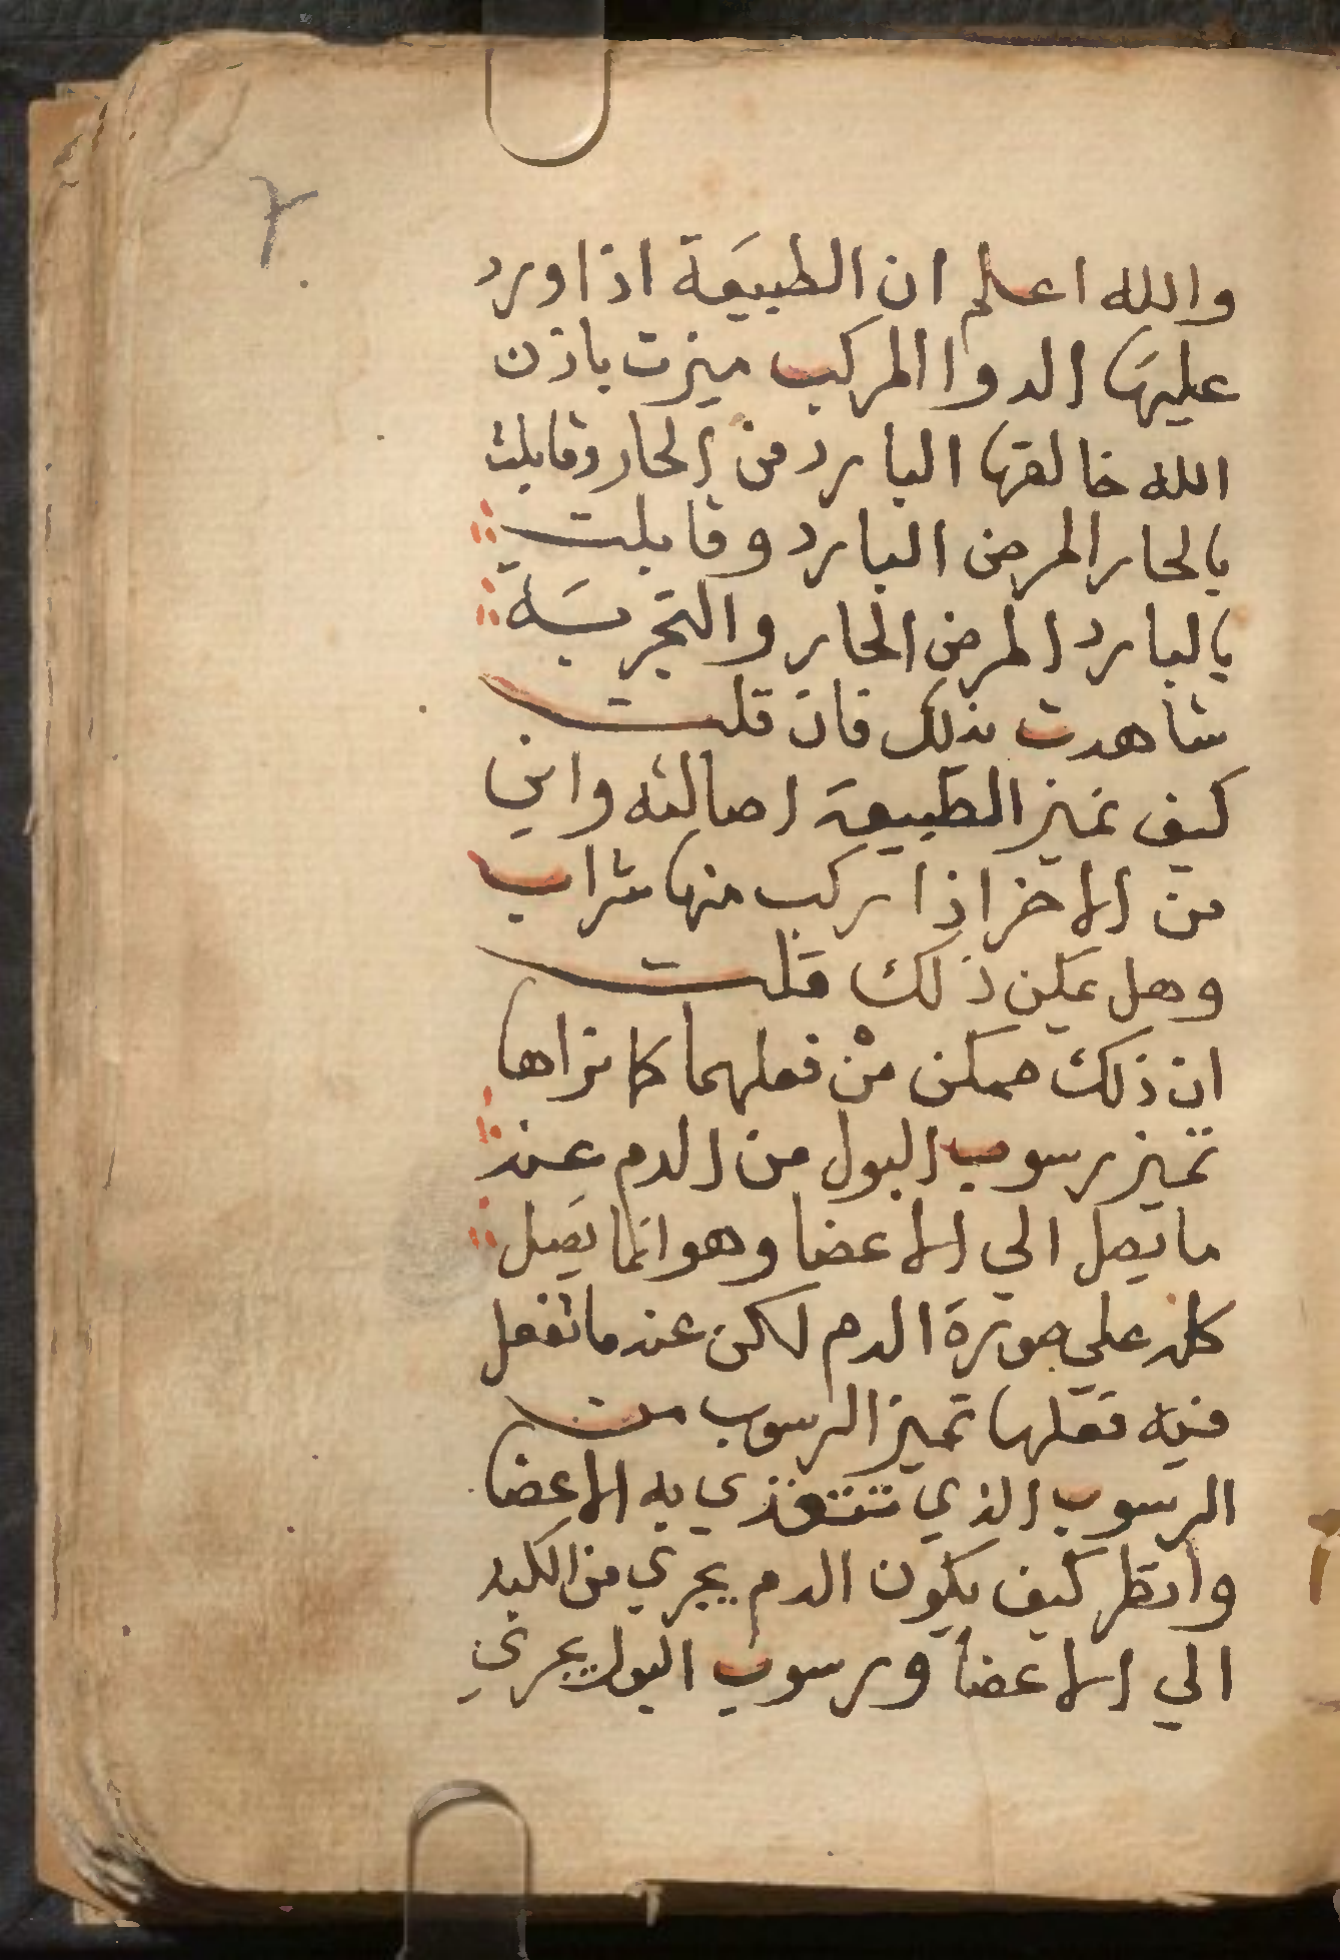 ٢
والله اعلم ان الطبيعة اذا ورد
عليها الدوا المركب ميزت باذن
الله خالقها البارد من الحار وقابلت
بالحار المرض البارد وقابلت
بالبارد المرض الحار والتجربة
شاهدت بذلك فان قلت
كيف تميز الطبيعة
من الاخر اذا ركب منها شراب
وهل يمكن ذلك قلت
ان ذلك ممكن من فعلهما كما نراها
تميز رسوب البول من الدم عند
ما تصل الي الاعضا وهو انما يصل
كله علي صورة الدم لكن عند ما تفعل
فيه فعلها تميز الرسوب من
الرسوب الذي تتغذي به الاعضا
وانظر كيف يكون الدم يجري من الكبد
الي الاعضا ورسوب البول يجري